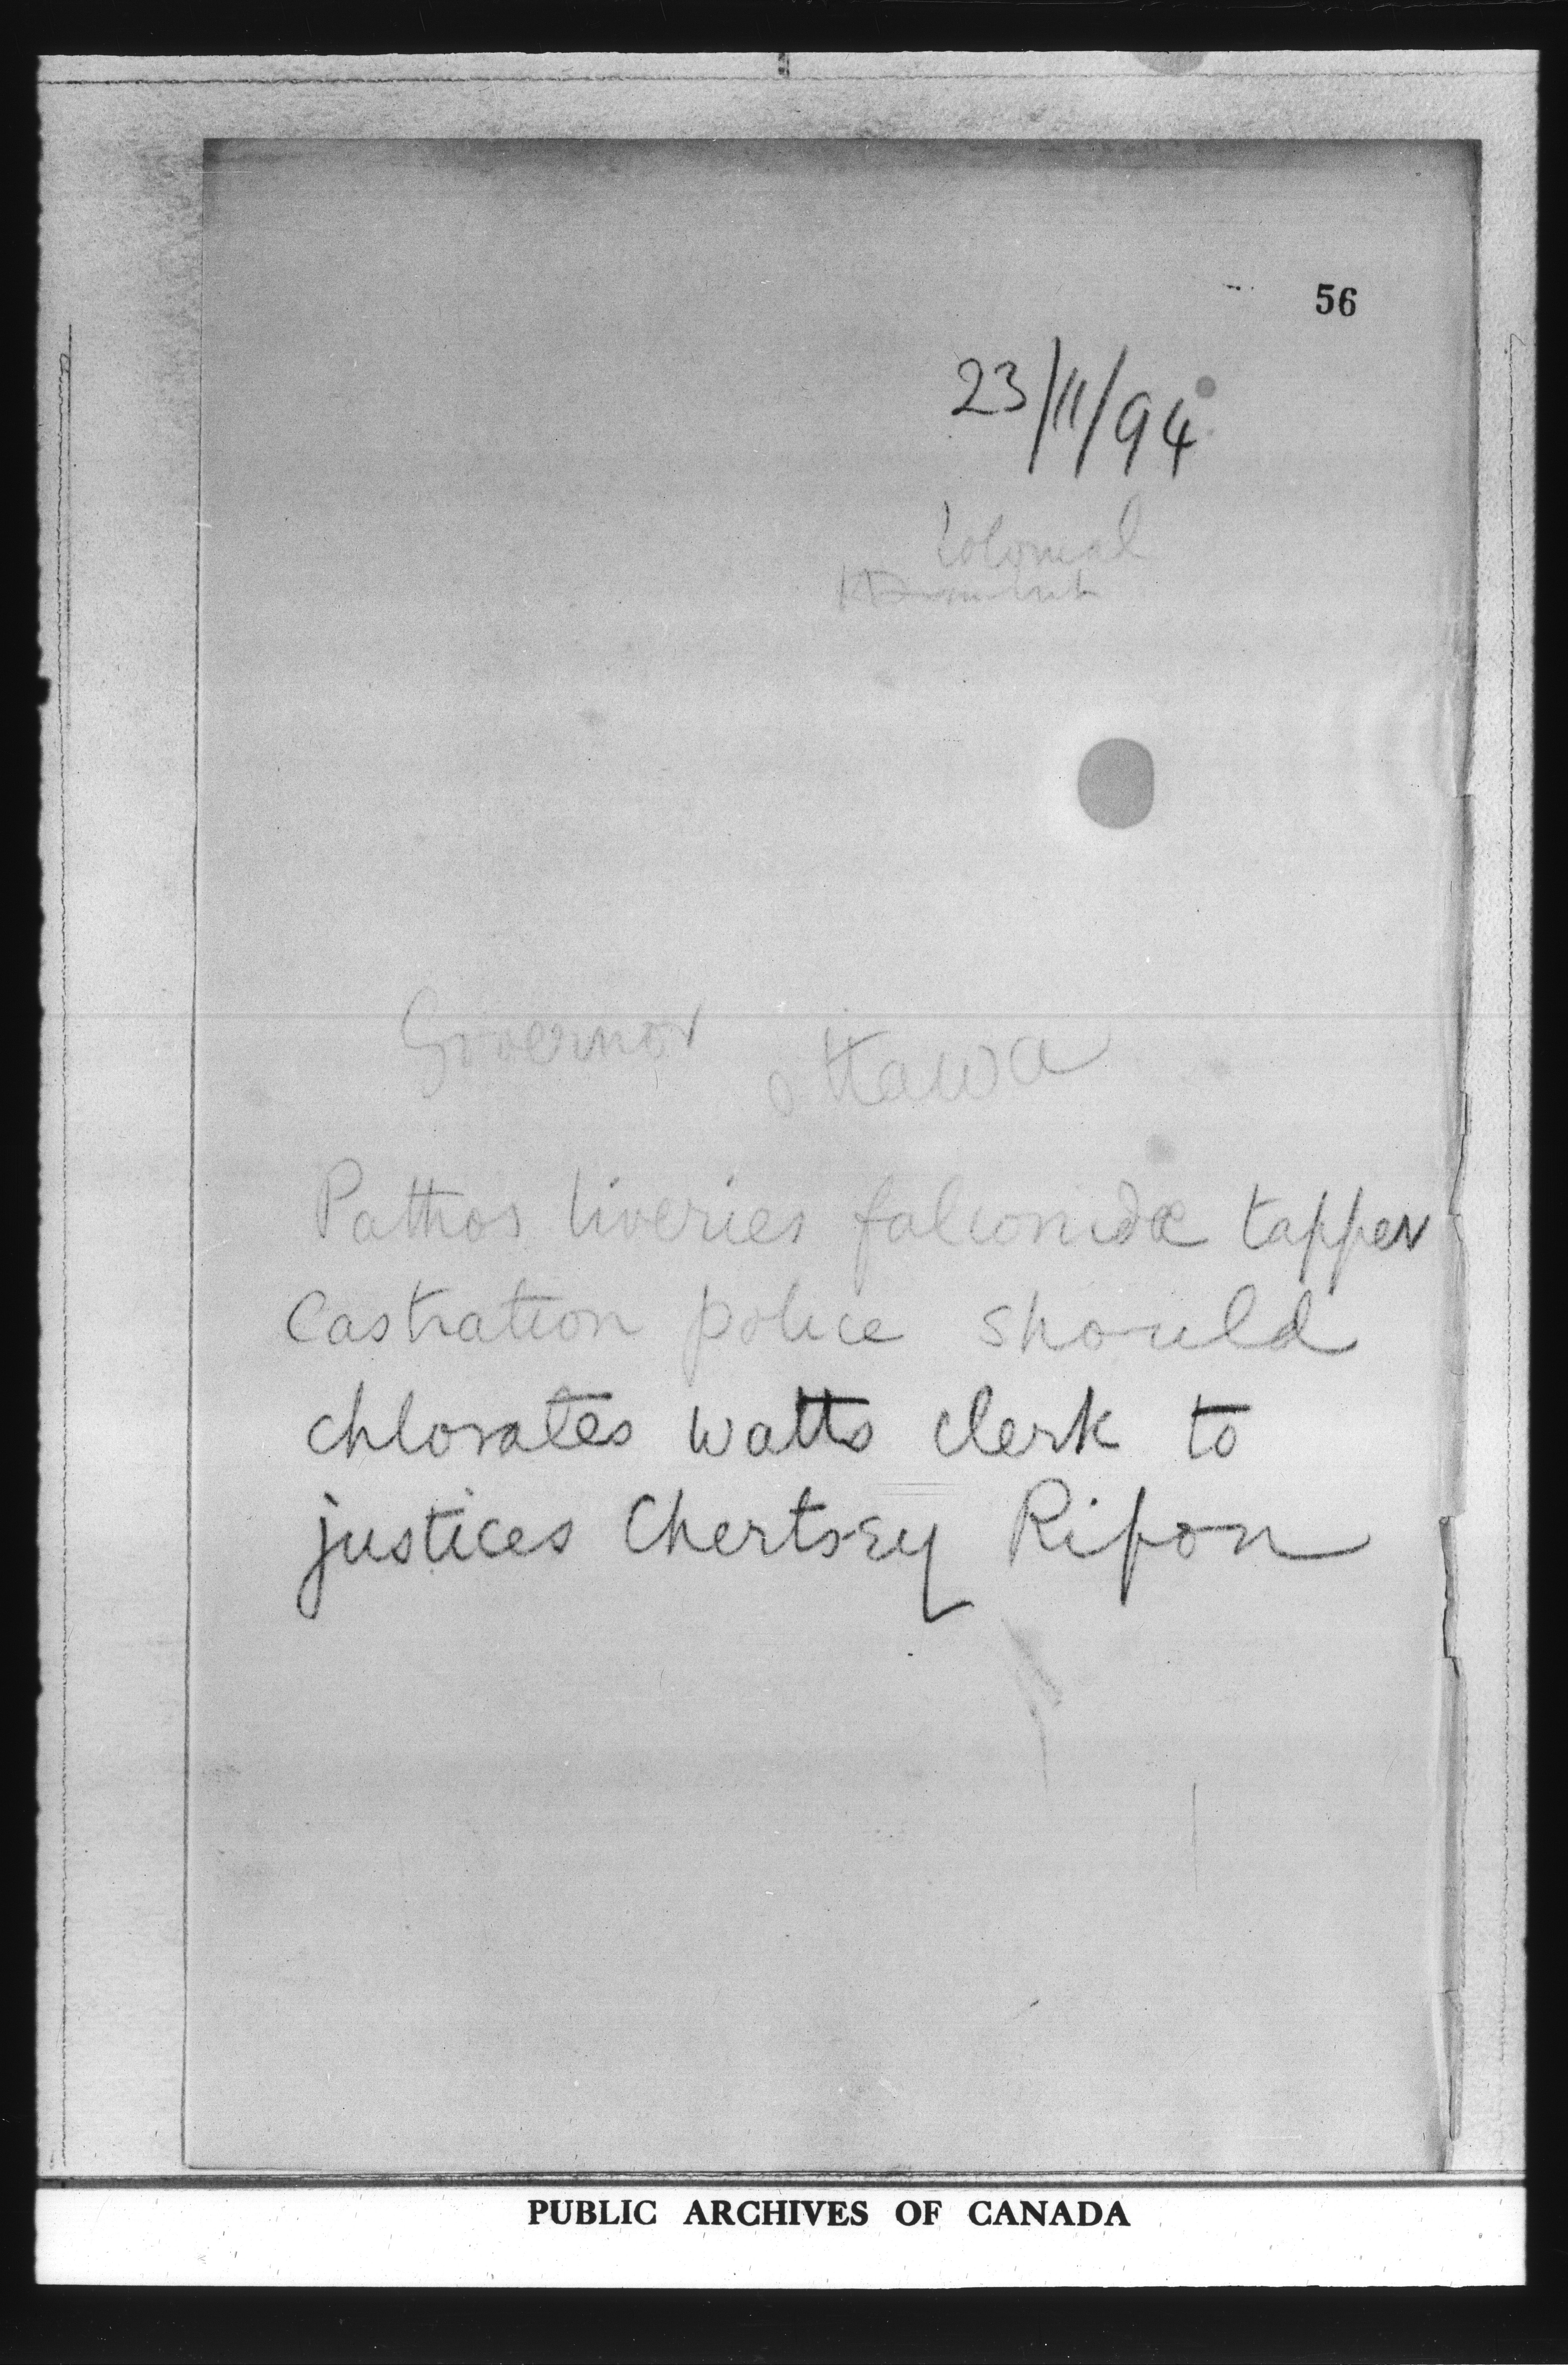 56
23/11/94
Colonial
Governor Ottawa
Pathos liveries falconidæ tapper
Castration police should
chlorates watts clerk to
justices Chertsey Ripon
PUBLIC ARCHIVES OF CANADA